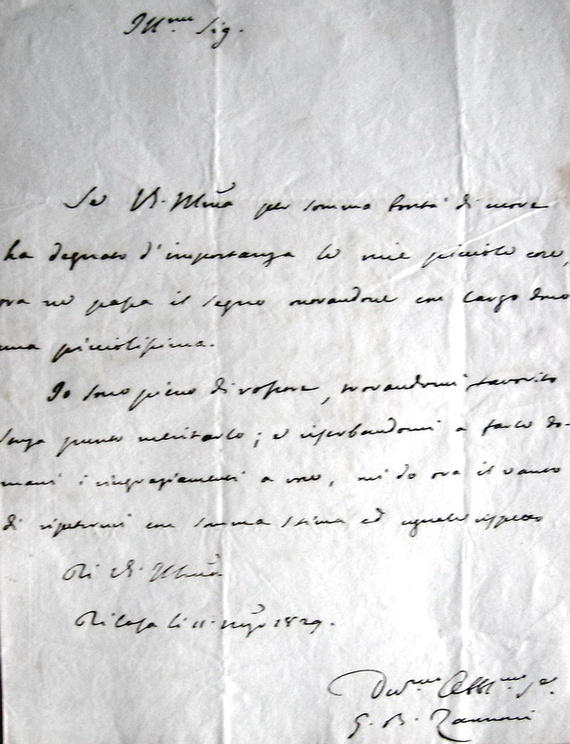 Ill.mo Sig.
Se V. S. Illma per somma bontà di cuore
ha degnato d'importanza le mie picciole cose,
ora ne passa il segno onorandone con largo dono
una picciolissima.
Io sono pieno di rossore, trovandomi favorito
senza punto meritarlo; e riserbandomi a farle do-
mani i ringraziamenti a voce, mi do ora il vanto
di ripetermi con somma stima ed eguale rispetto
Di V. S. Illma
Di Casa li 11. 1829.
Dev.mo Obb.mo Se.
G. B. Zannoni